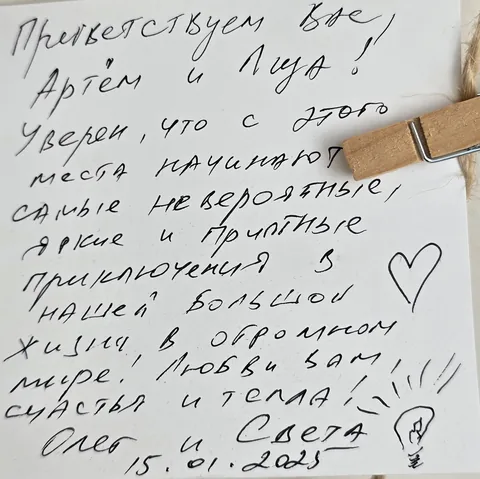 Приветствуем вас,
Артём и Лиза!
Уверен, что с этого
места начинают
самые невероятные,
яркие и приятные
приключения в
нашей большой
жизни, в огромном
мире! Любви вам,
счастья и тепла!
Олег и Света
15.01.2025